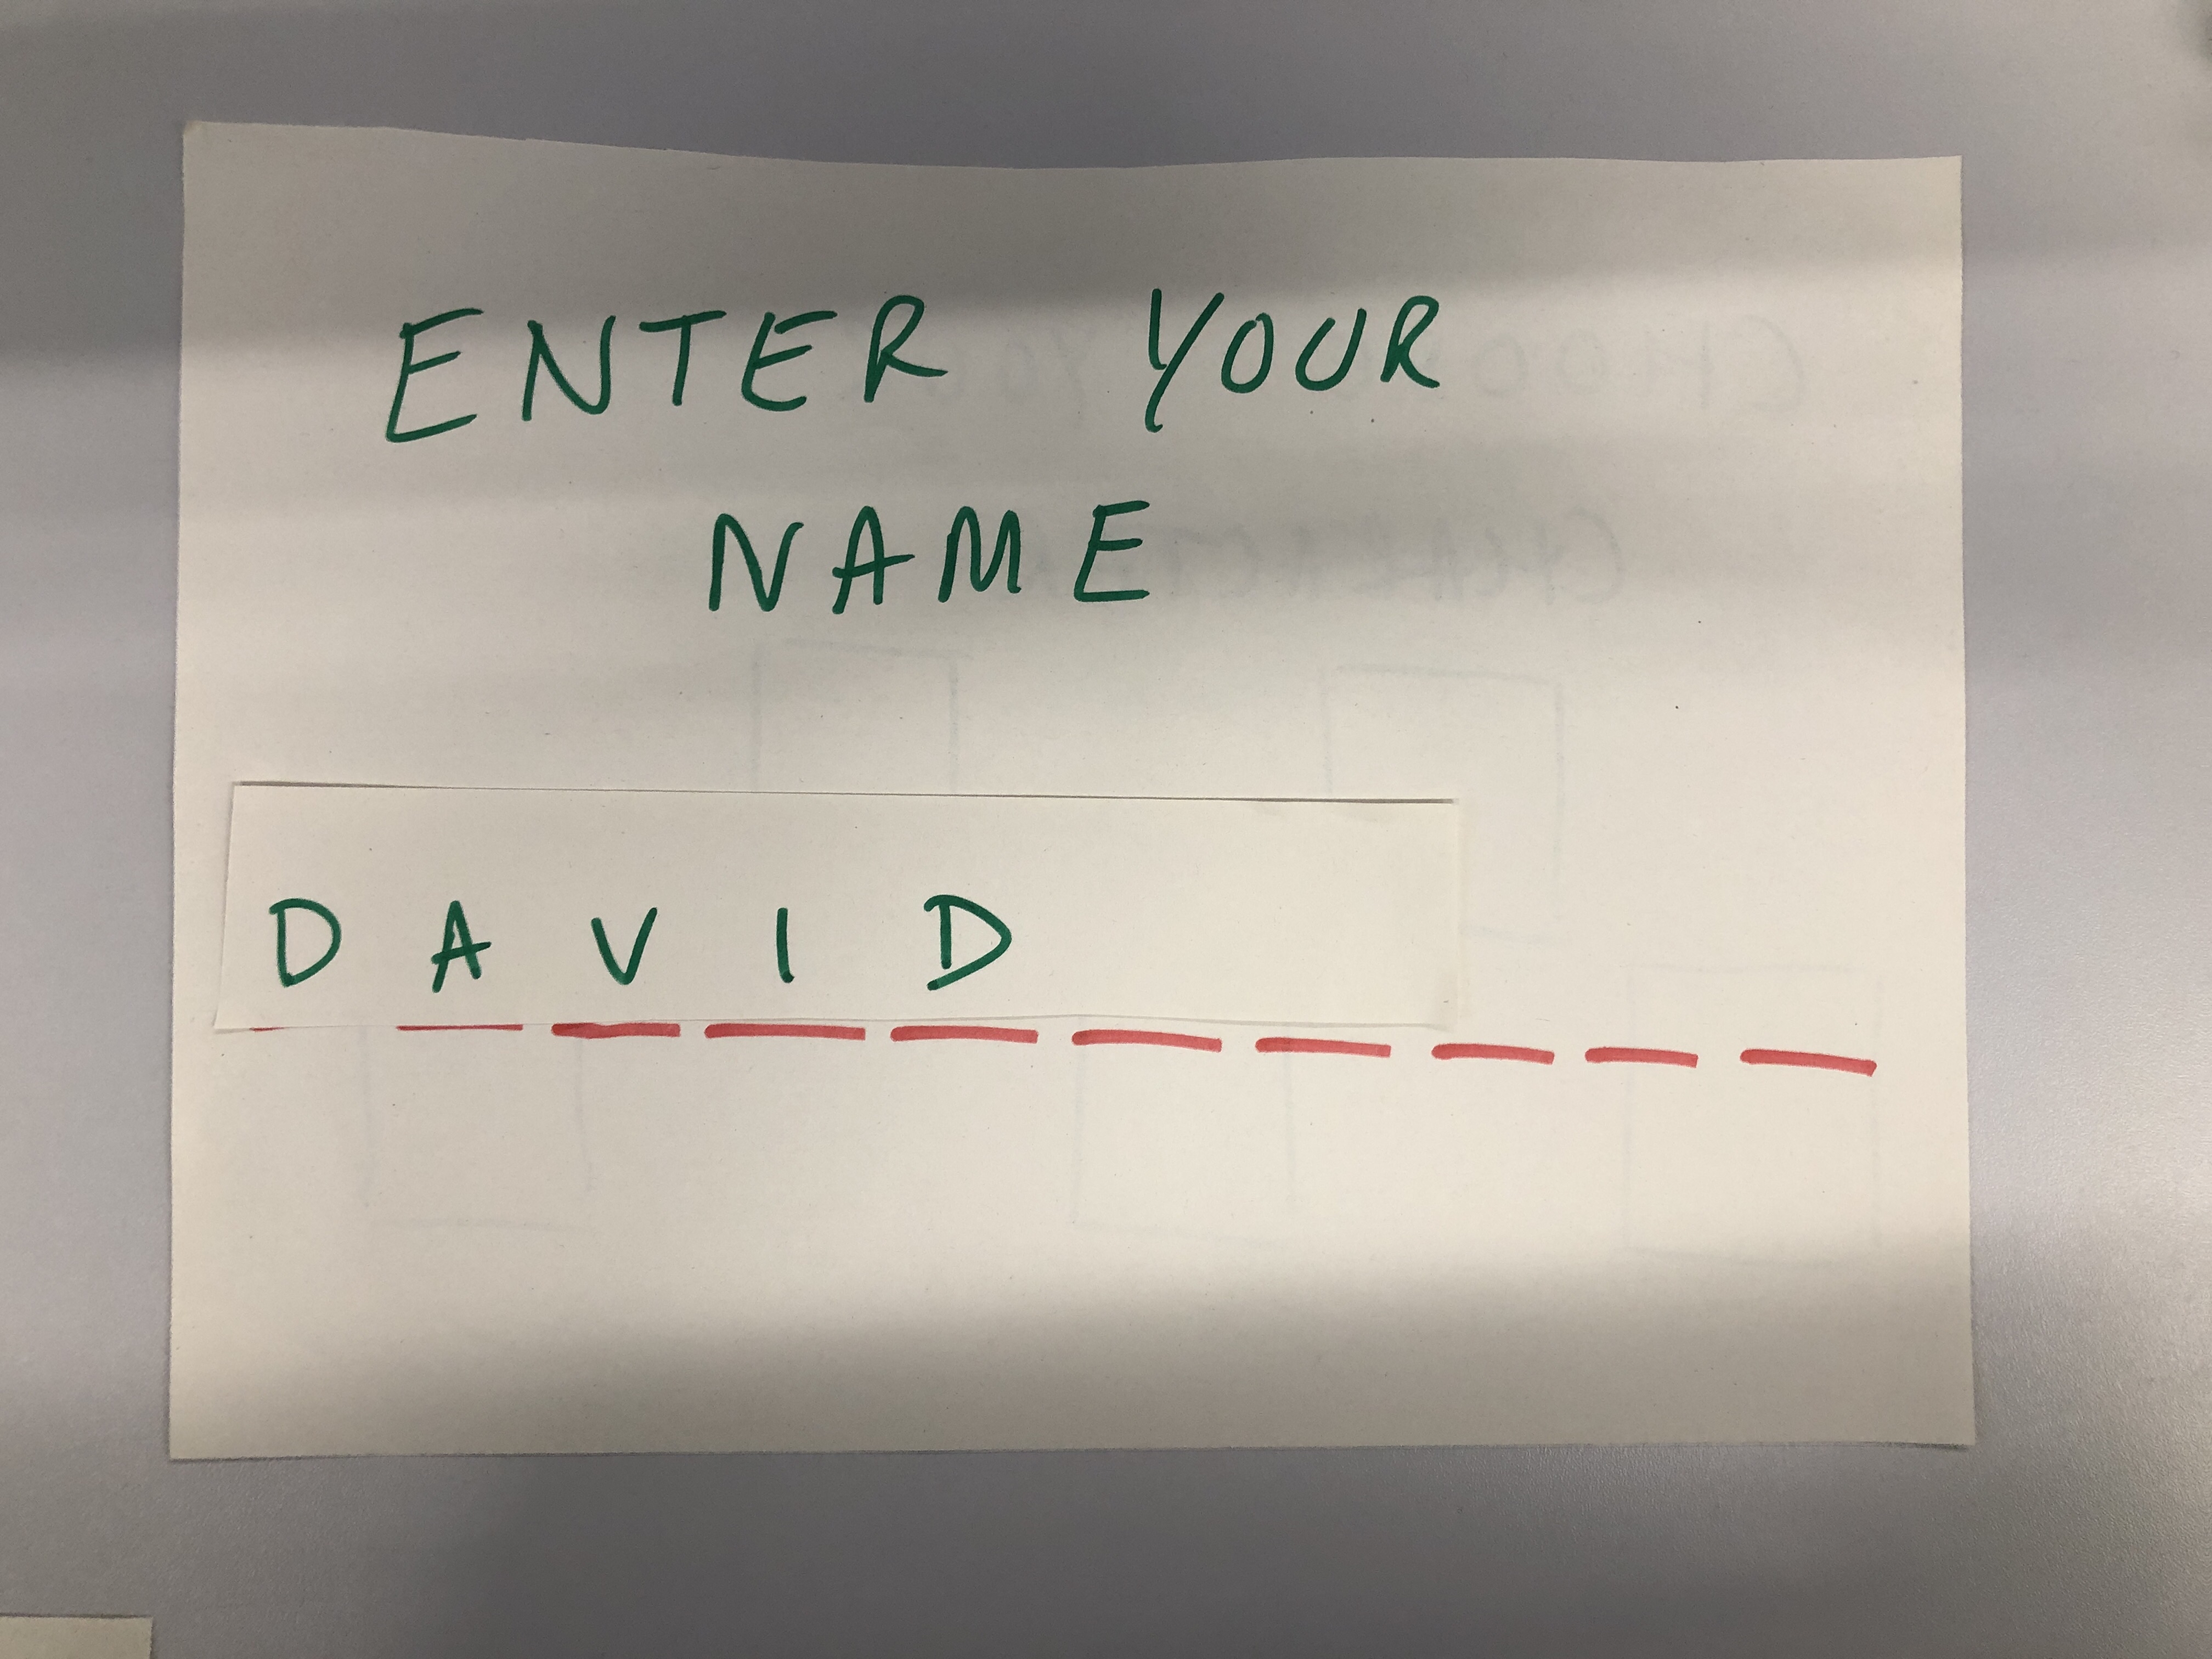 ENTER YOUR
NAME
DAVID